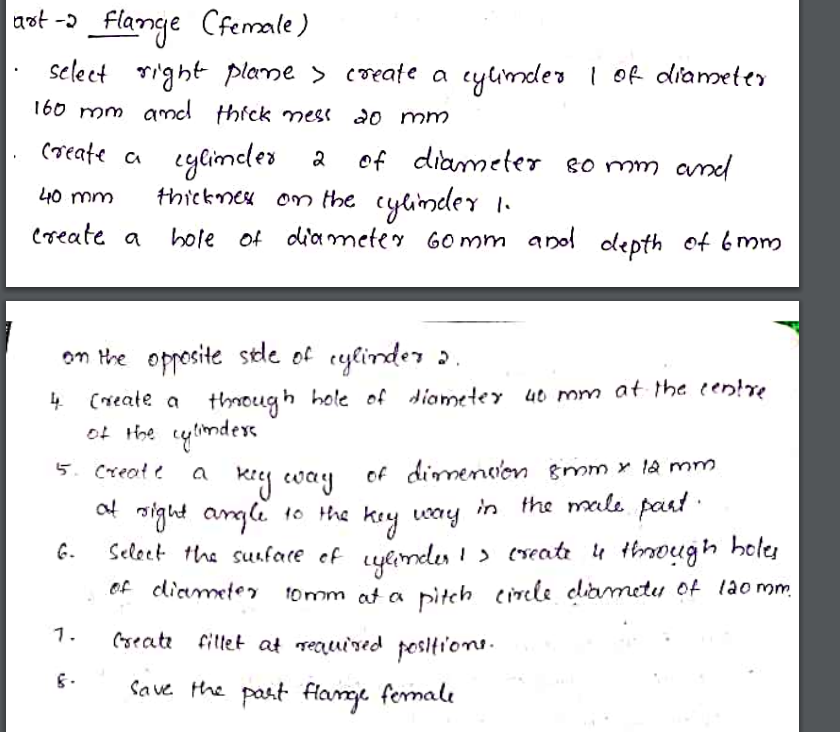 art -2 Flange (female)
· select right plane > create a cylinder 1 of diameter
160 mm and thick ness 20 mm
. Create a cylinder 2 of diameter 80 mm and
40 mm thickness on the cylinder 1.
Create a hole of diameter 60 mm and depth of 6mm
on the opposite side of cylinder 2.
4 Create a through hole of diameter 40 mm at the centre
of the cylinders
5. Create a key way of dimension 8mm x 12 mm
at right angle to the key way in the male part.
6. Select the surface of cylinder 1 > create 4 through holes
of diameter 10mm at a pitch circle diameter of 120 mm.
7. Create fillet at required positions.
8. Save the part flange female